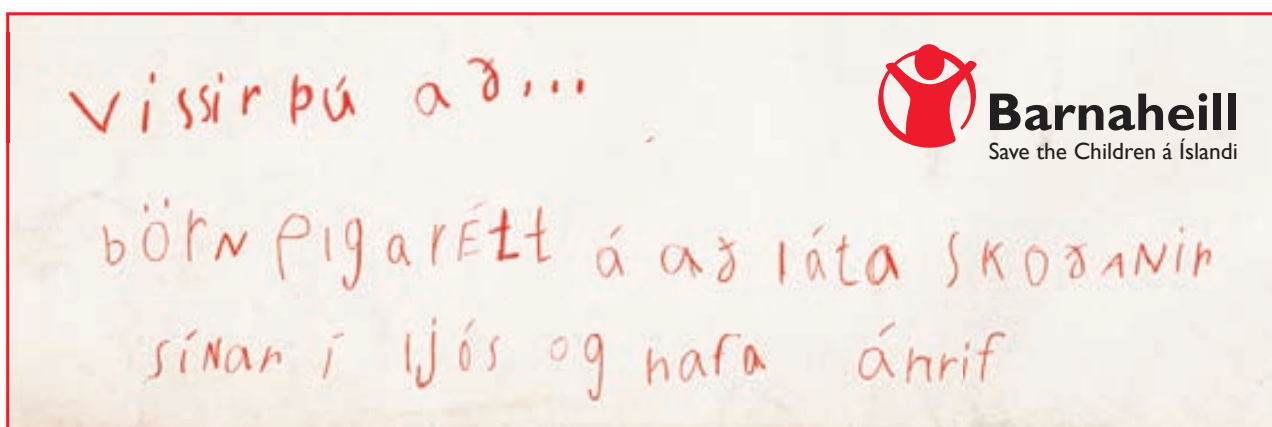 vissir þú að...
Barnaheill
Save the Children á Íslandi
börN eigarÉtt á að láta SKOðANir
síNar í ljós og hafa áhrif